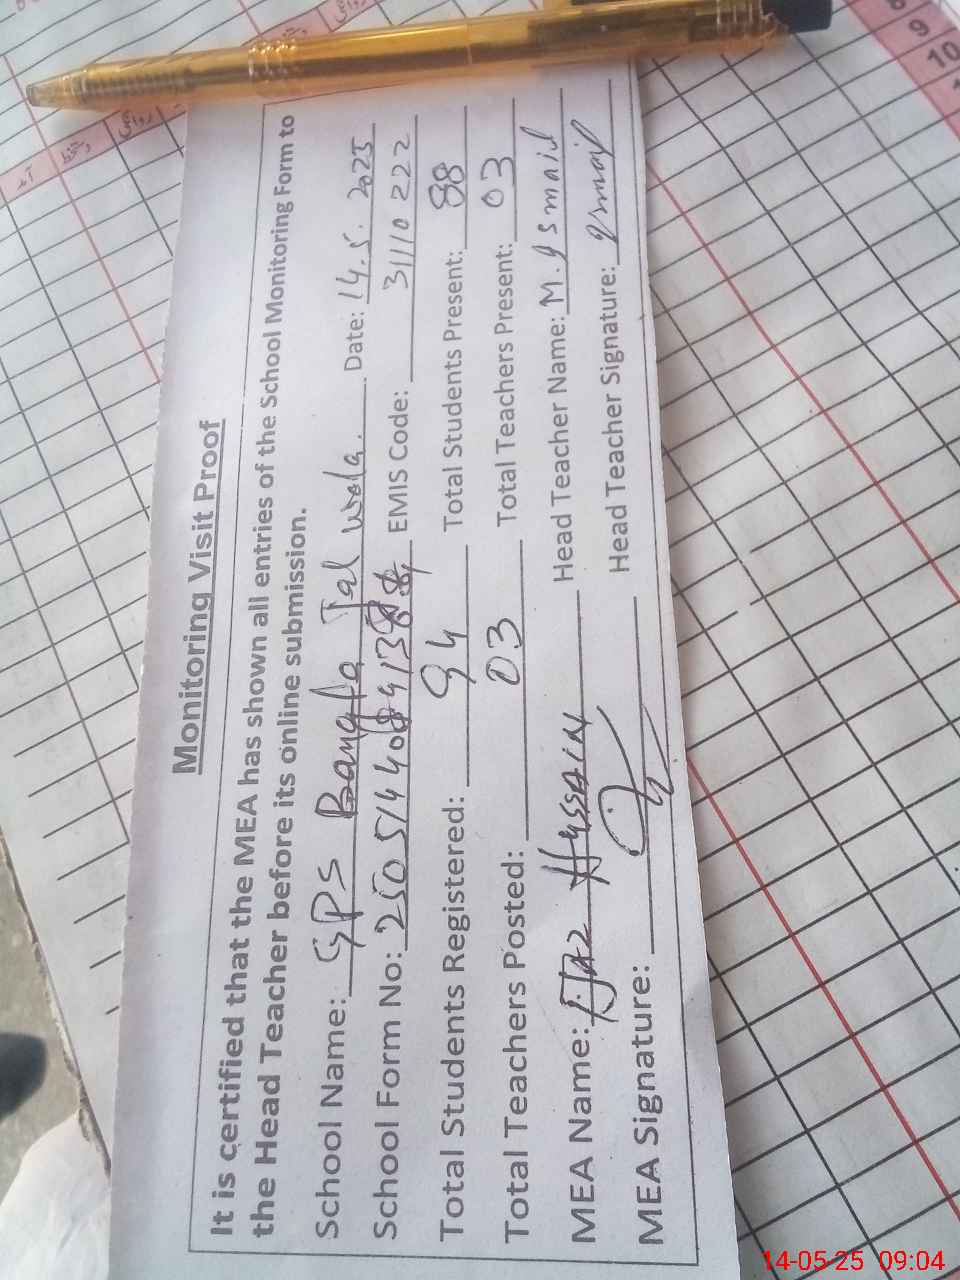 Monitoring Visit Proof
It is certified that the MEA has shown all entries of the School Monitoring Form to
the Head Teacher before its online submission.
School Name: GPS Bangla Jal wala. Date: 14.5.2025
School Form No: EMIS Code: 31110222
Total Students Registered: 94 Total Students Present: 88
Total Teachers Posted: 03 Total Teachers Present: 03
MEA Name: Ajaz Hussain Head Teacher Name: M.Ismail
MEA Signature: Head Teacher Signature: Ismail
9
10
14-05-25 09:04